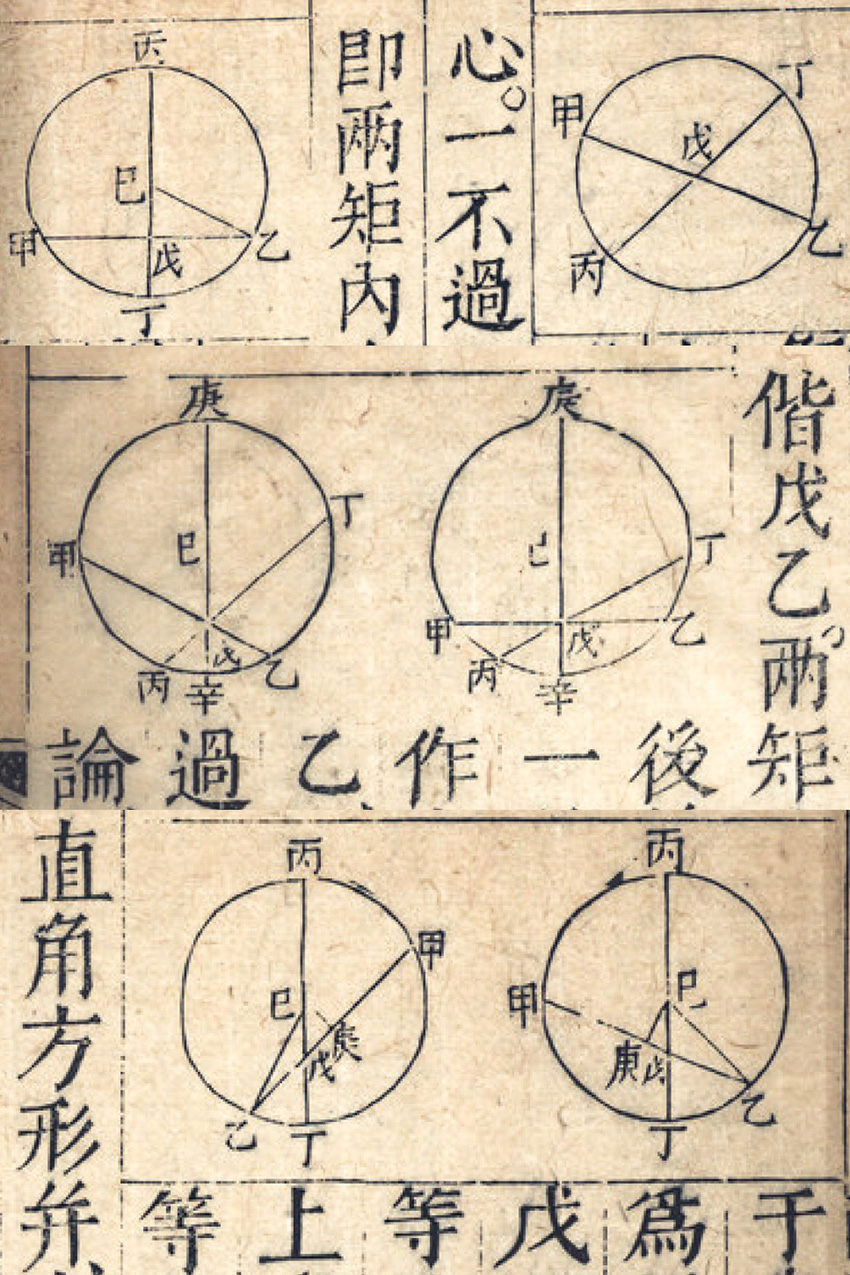 丁
甲
戊
乙
丙
心。一不過
即兩矩內
丙
巳
甲
戊
乙
丁
偕戊乙。兩矩
庚
丁
巳
甲
戊
乙
丙
辛
庚
丁
巳
甲
戊
乙
丙
辛
後
一
作
乙
過
論
丙
巳
甲
庚
戊
乙
丁
丙
甲
巳
庚
戊
乙
丁
直角方形并
于
爲
戊
等
上
等